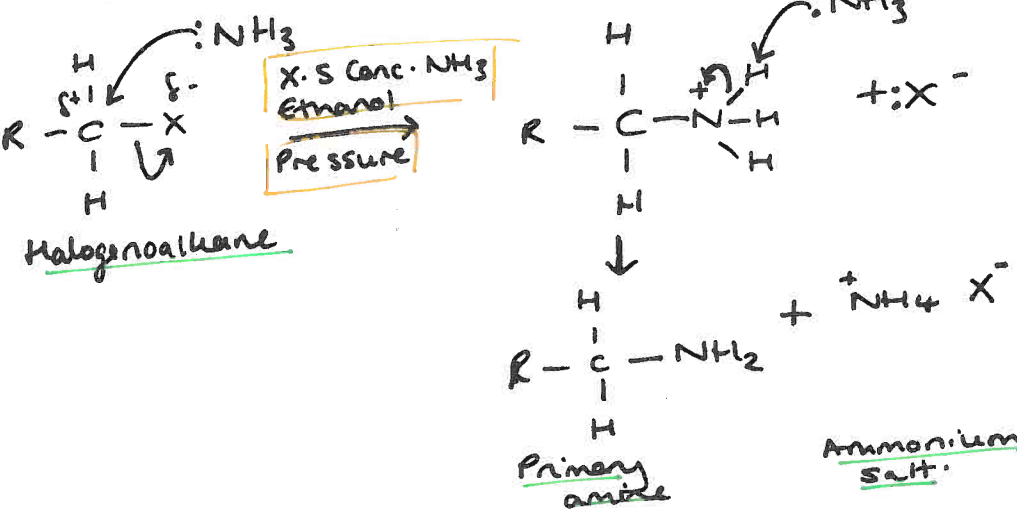 :NH3
.NH3
H
δ+ δ-
R – C – X
H
Halogenoalkane
X.S Conc. NH3
Ethanol
Pressure
H
H
R – C – N – H
+
H
H
+ :X -
H
R – C – NH2
H
Primary
amine
+ +NH4 X-
Ammonium
salt.